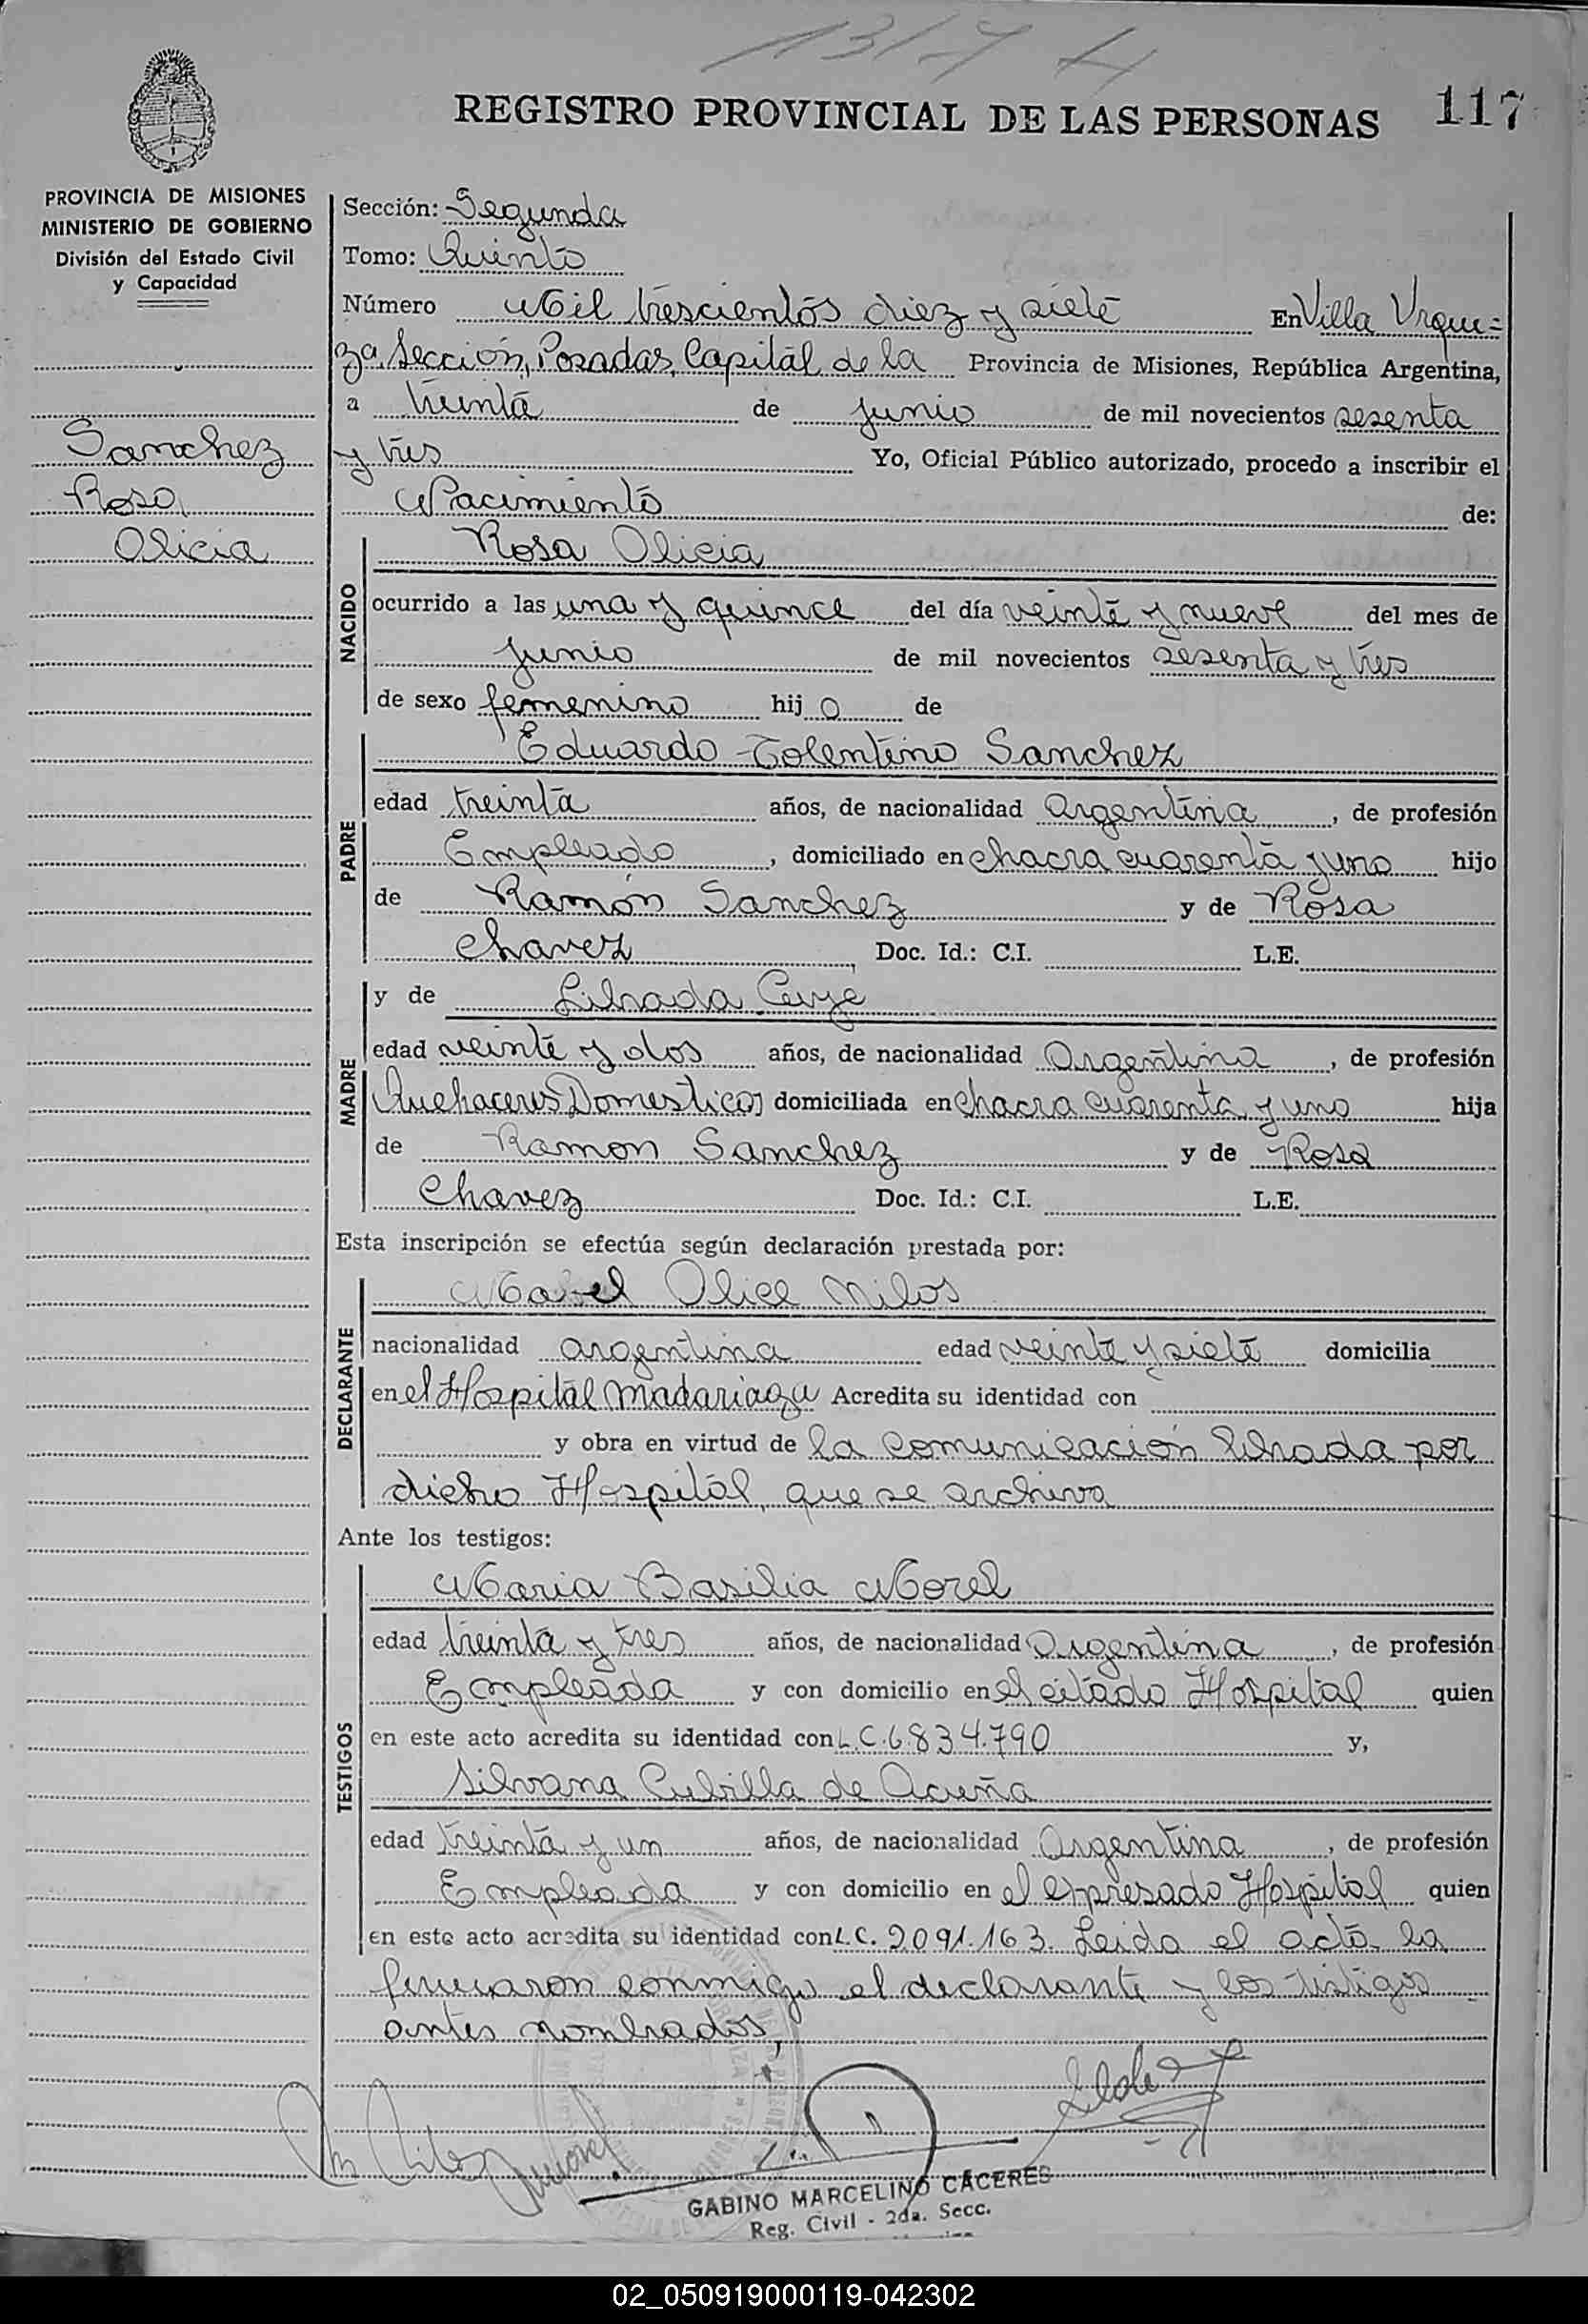 1317 4
REGISTRO PROVINCIAL DE LAS PERSONAS 117
PROVINCIA DE MISIONES
MINISTERIO DE GOBIERNO
División del Estado Civil
y Capacidad
Sanchez
Rosa
Alicia
Sección: Segunda
Tomo: Quinto
Número Mil trescientos diez y siete En Villa Urqui=
za, Sección, Posadas, Capital de la Provincia de Misiones, República Argentina,
a treinta de junio de mil novecientos sesenta
y tres Yo, Oficial Público autorizado, procedo a inscribir el
Nacimiento de:
NACIDO
Rosa Alicia
ocurrido a las una y quince del día veinte y nueve del mes de
junio de mil novecientos sesenta y tres
de sexo femenino hij a de
PADRE
Eduardo Tolentino Sanchez
edad treinta años, de nacionalidad Argentina, de profesión
Empleado, domiciliado en chacra cuarenta y uno hijo
de Ramón Sanchez y de Rosa
Chavez, Doc. Id.: C.I. L.E.
MADRE
y de Librada
edad veinte y dos años, de nacionalidad Argentina, de profesión
Quehaceres Domesticos domiciliada en chacra cuarenta y uno hija
de Ramon Sanchez y de Rosa
Chavez Doc. Id.: C.I. L.E.
Esta inscripción se efectúa según declaración prestada por:
DECLARANTE
Mabel Alice Milos
nacionalidad argentina edad veinte y siete domicilia
en el Hospital Madariaga Acredita su identidad con
y obra en virtud de la comunicación librada por
dicho Hospital, que se archiva
Ante los testigos:
TESTIGOS
Maria Basilia Morel
edad treinta y tres años, de nacionalidad Argentina, de profesión
Empleada y con domicilio en el citado Hospital quien
en este acto acredita su identidad con L.C. 6.834.790 y,
Silvana Cubilla de Acuña
edad treinta y un años, de nacionalidad Argentina, de profesión
Empleada y con domicilio en el expresado Hospital quien
en este acto acredita su identidad con L.C. 2.091.163. Leida el acta la
firmaron conmigo el declarante y los testigos
antes nombrados,
GABINO MARCELINO CACERES
Reg. Civil - 2da. Secc.
02_050919000119-042302